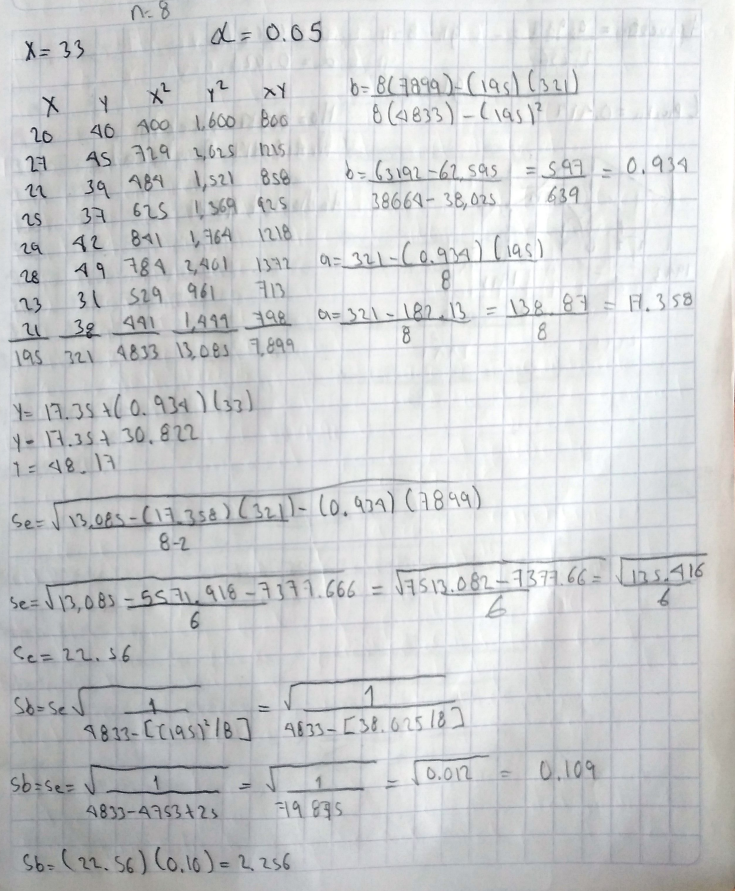 n=8
X=33 α=0.05
X Y X² Y² XY
20 40 400 1,600 800
27 45 729 2,025 1215
22 39 484 1,521 858
25 37 625 1,369 925
29 42 841 1,764 1218
28 49 784 2,401 1372
23 31 529 961 713
21 38 441 1,444 798
195 321 4833 13,085 7,899
b=8(7899)-(195)(321)
8(4833)-(195)²
b=63192-62,595 = 597 = 0.934
38664-38,025 639
a=321-(0.934)(195)
8
a=321-182.13 = 138.87 = 17.358
8 8
Y=17.35+(0.934)(33)
Y=17.35+30.822
Y=48.17
Se=√13,085-(17.358)(321)-(0.934)(7899)
8-2
Se=√13,085-5571.918-7377.666 = √7513.082-7377.66= √135.416
6 6 6
Se=22.56
Sb=Se√ 1 = √ 1
4833-[(195)²/8] 4833-[38.025/8]
Sb=Se=√ 1 = √ 1 = √0.012 = 0.109
4833-4753+25 79.875
Sb=(22.56)(0.10)=2.256